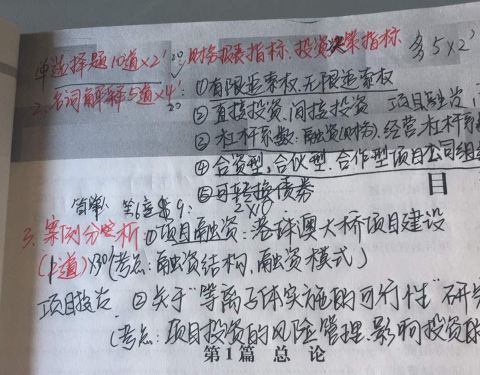 单选择题10道×2' 20 财务报表指标、投资决策指标 多5×2'
2.名词解释5道×4': ①有限追索权、无限追索权
20 ②直接投资、间接投资 项目融资,
③杠杆系数:融资(财务)、经营杠杆系数
④合资型,合伙型、合作型项目公司组
⑤可转换债券
目
简单 第6章 9: 2×10
3.案例分析:①项目融资:港珠澳大桥项目建设
(1道)×30'(考点:融资结构,融资模式)
项目投资 ②关于"等离子体实施的可行性"研究
(考点:项目投资的风险管理、影响投资的
第1篇 总论